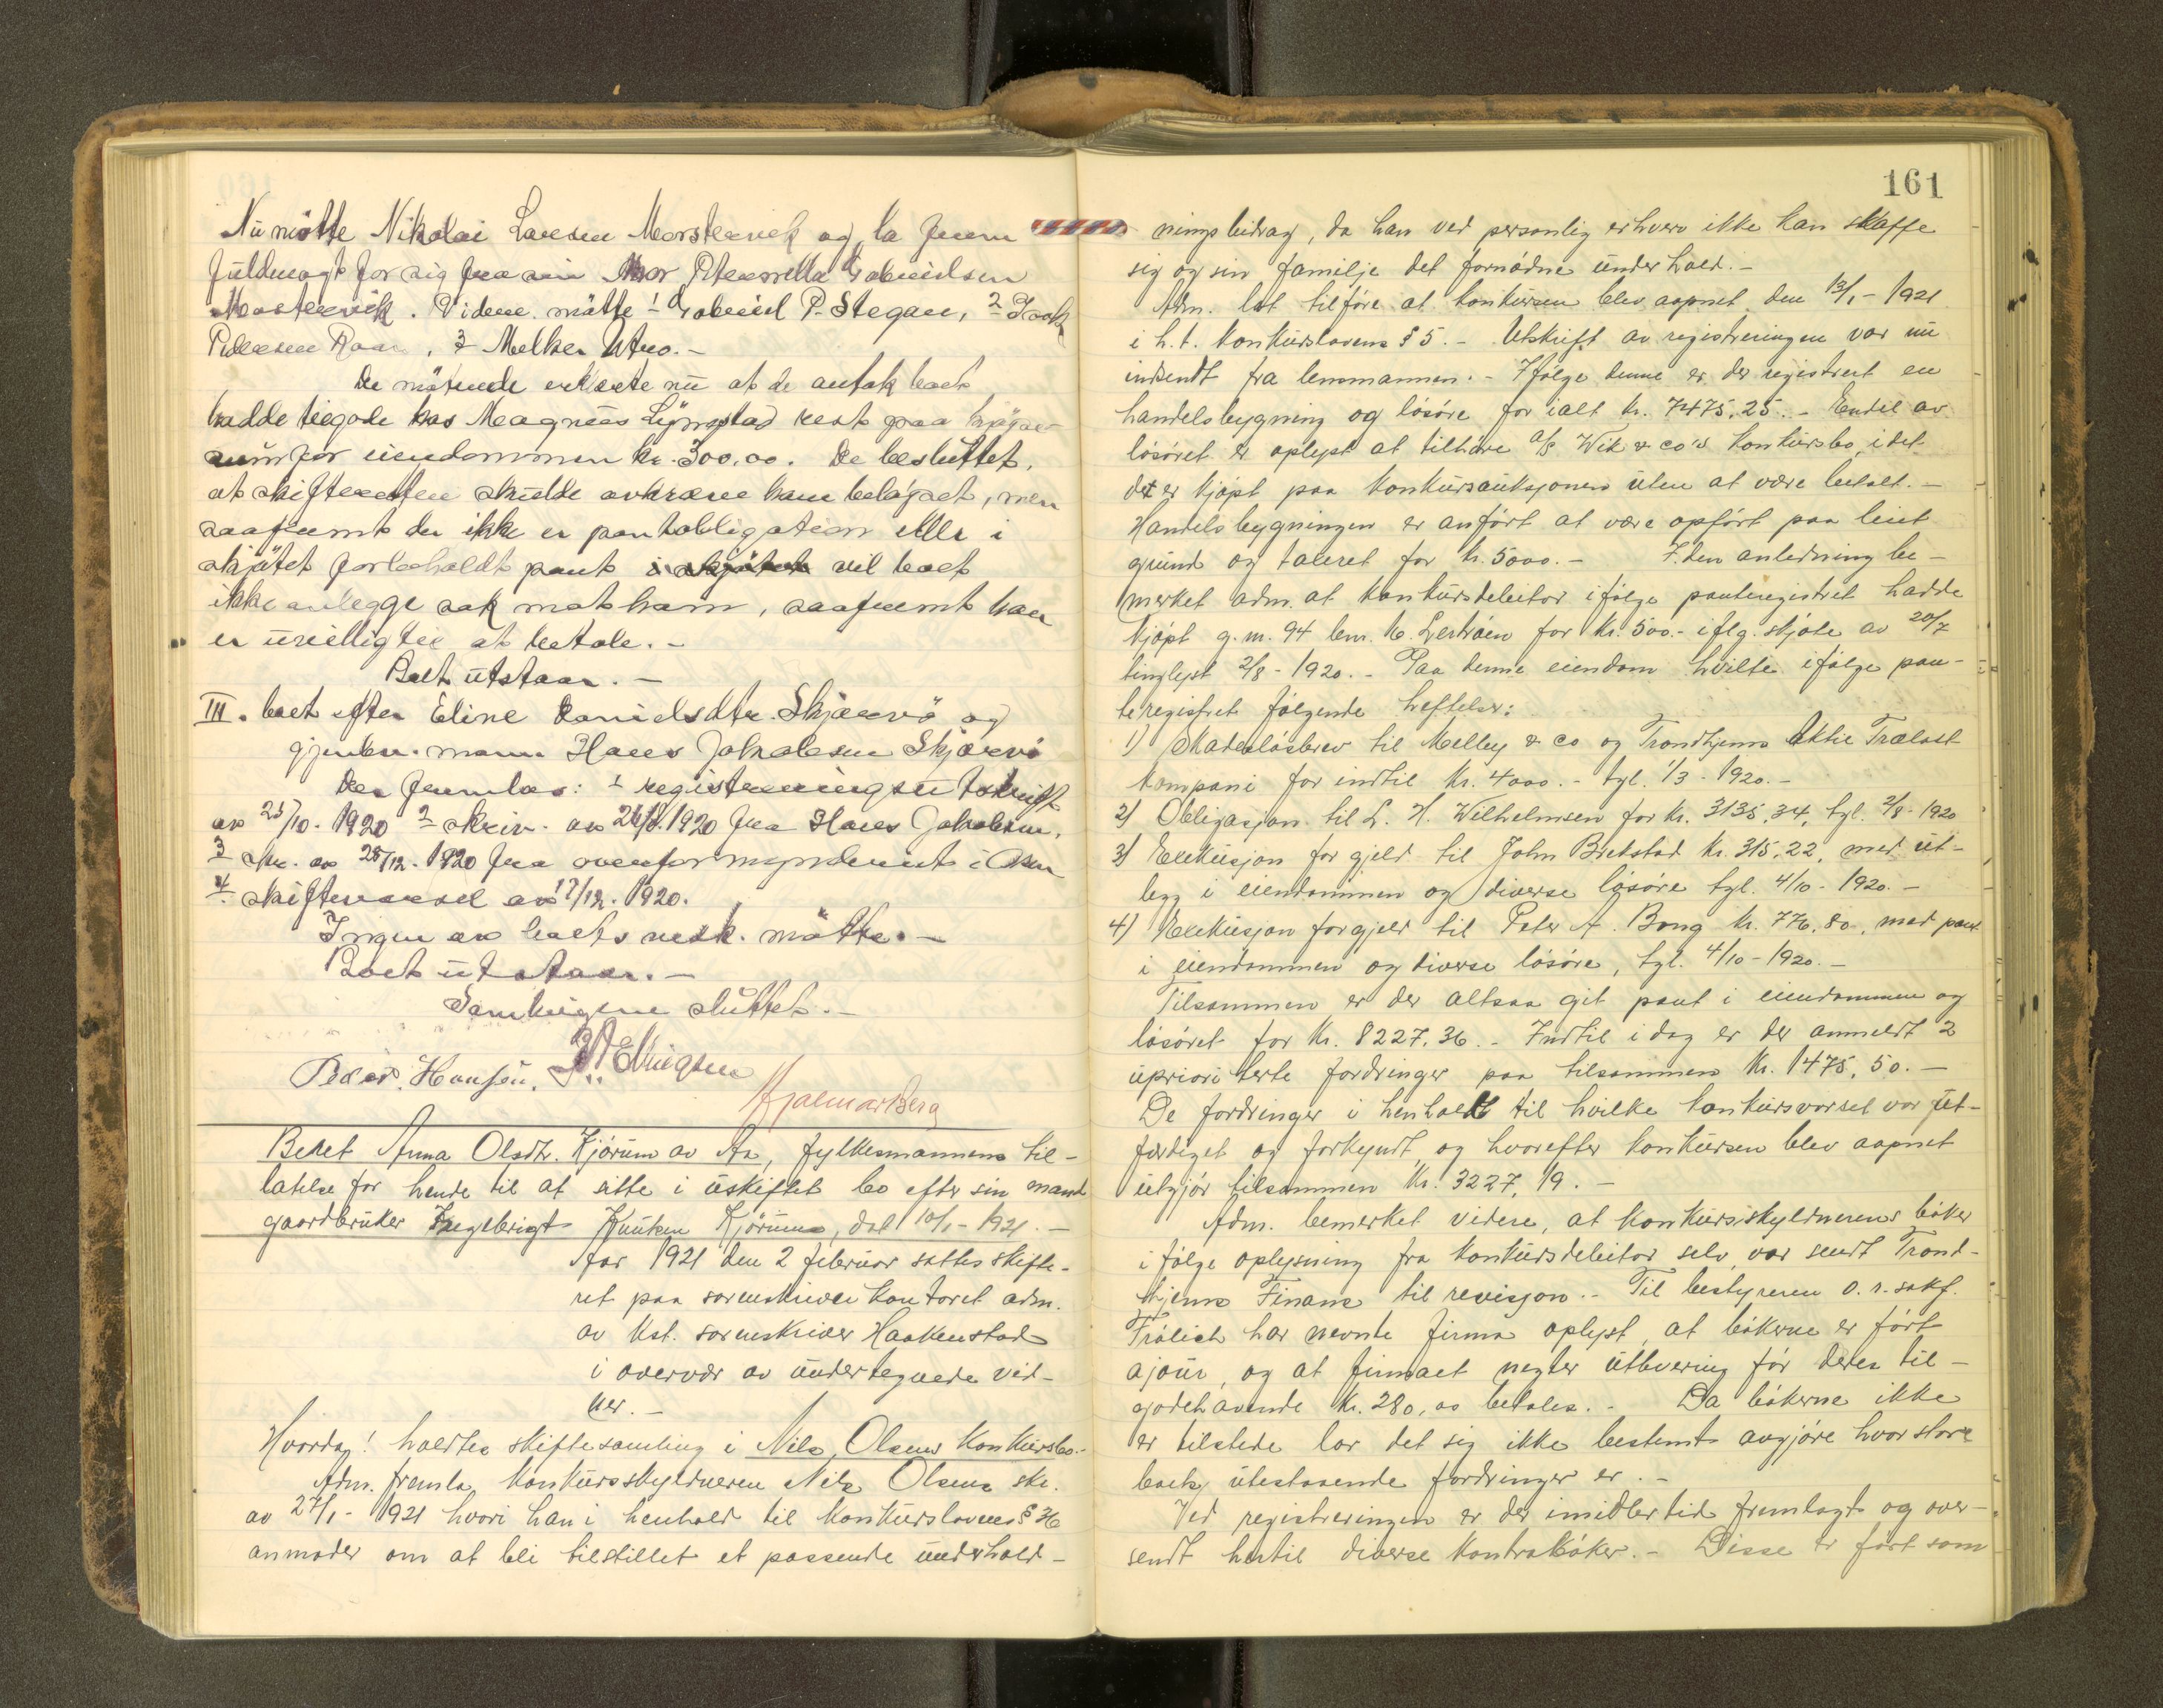 Nu møtte Nikolai Larsen Morstervik og la frem
fuldmagt for sig fra sin Mor Gabrielsen
. Videre møtte 1 Gabriel P. Stegan, 2
Pedersen , 3 Melker Utro.-
De møtende erklærte nu at de antok boet
hadde tilgode hos Magnus Lyngstad rest paa
for eiendommen kr. 300.00. De besluttet,
at skifteretten skulde avkræve ham beløpet, men
saafremt der ikke er pantobligation eller i
skjøtet forbeholdt pant i skjøtet vil boet
ikke anlegge sak mot ham, saafremt han
er uvillig til at betale.-
Boet utstaar.-
III. boet efter Eline Danielsdtr. Skjærvø og
gjenlev. mann Hans Jakobsen Skjærvø
Der fremlas: 1 registreringsutskrift
av 25/10. 1920 2 skriv. av 1920 fra Hans Jakobsen,
3 skr. av 28/12. 1920 fra overformynderiet i Aasen
4 skiftevarsel av 17/12. 1920.
Ingen av boets vedk. møtte.-
Boet utstaar.-
Samlingene sluttet.-
Peder Hansen. Ellingsen
Hjalmar Berg
Beret Anna Olsdtr. Kjørum av Aa, fylkesmannens til-
latelse for hende til at sitte i uskiftet bo efter sin mand
gaardbruker Ingebrigt Knutsen Kjørum, dat 10/1-1921.-
Aar 1921 den 2 februar sattes skifte-
ret paa sorenskriverkontoret adm.
av kst. sorenskriver Haakenstad
i overvær av undertegnede vid-
ner.-
Hvorda! holdtes skiftesamling i Nils Olsens Konkursbo.-
Adm. fremla konkursskyldneren Nils Olsens skr.
av 27/1- 1921 hvori han i henhold til Konkurslovens § 36
anmoder om at bli tilstillet et passende underhold-
161
ningsbidrag, da han ved personlig erhverv ikke kan skaffe
sig og sin familje det fornødne underhold.-
Adm. lot tilføre at konkursen blev aapnet den 13/1- 1921
i h.t. Konkurslovens § 5.- Utskrift av registreringen var nu
indsendt fra lensmannen.- Ifølge denne er der registrert en
handelsbygning og løsøre for ialt kr. 7475.25.- Endel av
løsøret er oplyst at tilhøre A/S Wik & co's konkursbo, idet
det er kjøpt paa konkursauksjonen uten at være betalt.-
Handelsbygningen er anført at være opført paa leiet
grund og taksert for kr. 5000.- I den anledning be-
merket adm. at konkursdebitor ifølge panteregistret hadde
kjøpt g.nr. 94 bnr. 16. for kr. 500.- iflg. skjøte av 20/7
tinglyst 2/8-1920.- Paa denne eiendom hvilte ifølge pan-
teregistret følgende heftelser:
1) Skadesløsbrev til Melbey & co og Trondhjems Aktie Trælast
kompani for indtil kr. 4000.- tgl. 1/3-1920.-
2) Obligasjon til L. H. Wilhelmsen for kr. 3135,34, tgl. 2/8-1920
3) Eksekusjon for gjeld til John Bretstad kr. 315,22, med ut-
legg i eiendommen og diverse løsøre tgl. 4/10-1920.-
4) Eksekusjon for gjeld til Peter A. Bong kr. 776,80, med pant
i eiendommen og diverse løsøre, tgl. 4/10-1920.-
Tilsammen er der altsaa git pant i eiendommen og
løsøret for kr. 8227.36.- Indtil i dag er der anmeldt 2
uprioriterte fordringer paa tilsammen kr. 1475,50.-
De fordringer i henhold til hvilke konkursvarsel var ut-
færdiget og forkyndt og hvorefter konkursen blev aapnet
utgjør tilsammen kr. 3227,19.-
Adm. bemerket videre, at konkursskyldnerens bøker
ifølge oplysning fra konkursdebitor selv var sendt Trond-
hjems Finans til revisjon.- Til bestyreren o.r.sakf.
Frølich har nevnte firma oplyst at bøkerne er ført
ajour, og at firmaet negter utlevering før deres til-
godehavende kr. 280,00 betales.- Da bøkerne ikke
er tilstede lar det sig ikke bestemt avgjøre hvor store
boets utestaaende fordringer er.-
Ved registreringen er der imidlertid fremlagt og over-
sendt hertil diverse kontrabøker.- Disse er ført som